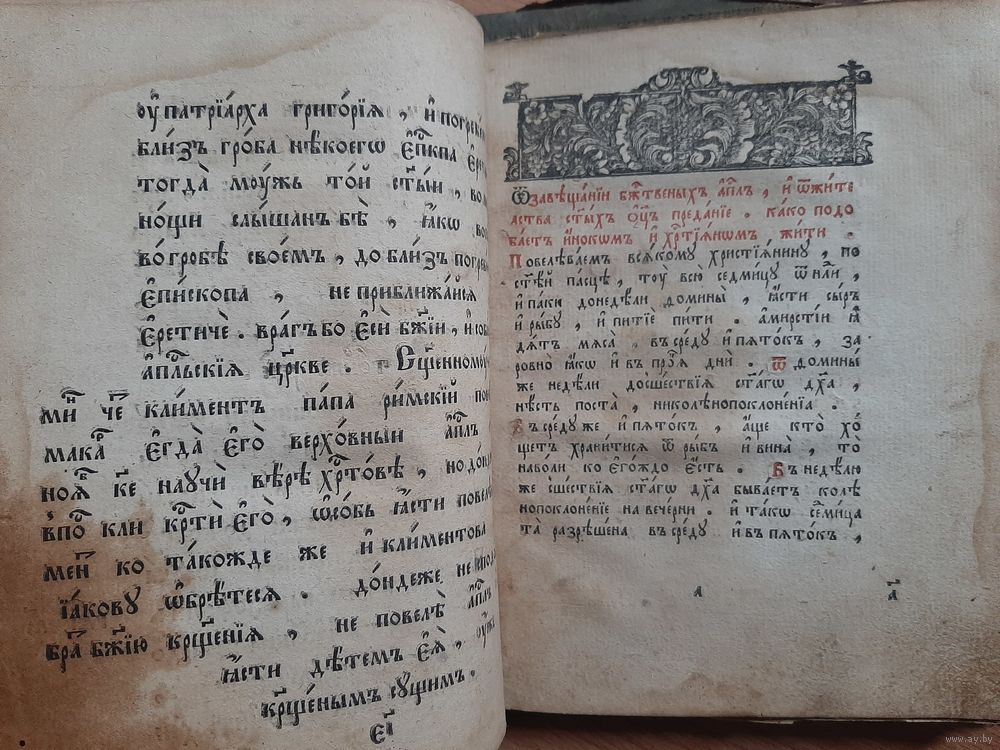 ᲂу҆ патрїа́рха григо́рїѧ , и҆ погребе́
бли́зъ гро́ба нѣ́коегѡ є҆пⷭ҇кпа є҆ре
тогда̀ мꙋ́жъ то́й ст҃ы́й , во
но́щи слы́шанъ бѐ , ꙗ҆́кѡ во
во гро́бѣ свое́мъ , до бли́зъ погребе
є҆пи́скопа , не приближа́йсѧ
є҆рети́че . вра́гъ бо є҆сѝ бж҃їй , и҆ собо
а҆пⷭ҇льскїѧ цр҃кве . Сщ҃енномꙋ́
мни́ че кли́ментъ па́па ри́мскїй по
мака є҆гда̀ є҆го̀ верхо́вный а҆пⷭ҇лъ
научѝ вѣ́рѣ хрⷭ҇то́вѣ , но до́н
кр҇ти́ є҆го̀ , ѻ҆со́бь ꙗ҆́сти повелѣ
ко та́кожде же и҆ кли́ментова
їа́кову ѡ҆брѣ́тесѧ . до́ндеже не
бра бж҃їю кр҃ще́нїѧ , не повелѣ̀ а҆пⷭ҇лъ
ꙗ҆́сти дѣ́темъ є҆ѧ̀ ,
кр҃ще́нымъ сꙋ́щимъ .
є҃і
Ѿ завѣща́нїи бжⷭ҇твеныхъ а҆пⷭ҇лъ , и҆ ѿ жи́те
лства ст҃ы́хъ ѻ҆ц҃ъ преда́нїе . ка́ко подо
ба́етъ и҆́нокѡмъ и҆ хрⷭ҇тїѧ́нѡмъ жи́ти .
Повелѣва́ем всѧ́кому христїѧ́нину , по
ст҃ѣ́й па́сцѣ , тоу̀ всю̀ седми́цу ѿ нлⷣи ,
и҆ па́ки до недѣ́ли домины̀ , ꙗ҆́сти сы́ръ
и҆ ры́бу , и҆ питїѐ пи́ти . а҆ мирстїи ꙗ҆
дѧ́тъ мѧ́са , въ сре́ду и҆ пѧто́къ , за
ровно̀ ꙗ҆́кѡ и҆ в про́чїѧ дни̑ . Ѿ домины̀
же недѣ́ли до сше́ствїѧ ст҃а́гѡ дх҃а ,
нѣ́сть поста̀ , ни колѣнопоклоне́нїѧ .
Въ сре́ду же и҆ пѧто́къ , а҆́ще кто̀ хо́
щетъ храни́тисѧ ѿ ры́бъ и҆ вина̀ , то̀
на воли ко є҆го́ждо є҆́сть . Въ недѣ́лю
же сше́ствїѧ ст҃а́гѡ дх҃а быва́етъ колѣ
нопоклоне́нїе на вече́рни . и҆ та́кѡ сеⷣми́ца
та̀ разрѣшена̀ въ сре́ду и҆ въ пѧто́къ ,
а
www.ay.by